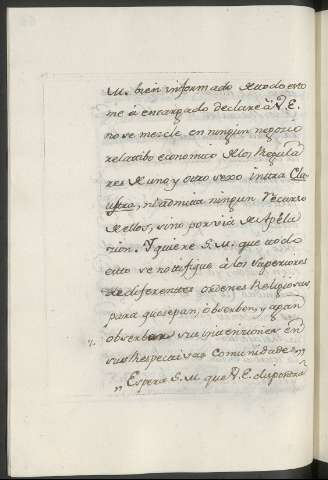 M. bien informado de todo esto
me à encargado declare à V.E.
no se mescle en ningun negocio
relatibo economico de los Regula
res de uno, y otro sexo intra Clau
ustra, ni admita ningun Recurso
de ellos, sino por via de Apela
zion. Y quiere S.M. que todo
esto se notifique à los Superiores
de diferentes ordenes Religiosas
para que sepan, observen, y agan
observar sus intenciones en
sus Respectivas Comunidades,,
,, Espera S.M. que V.E. dispondrà